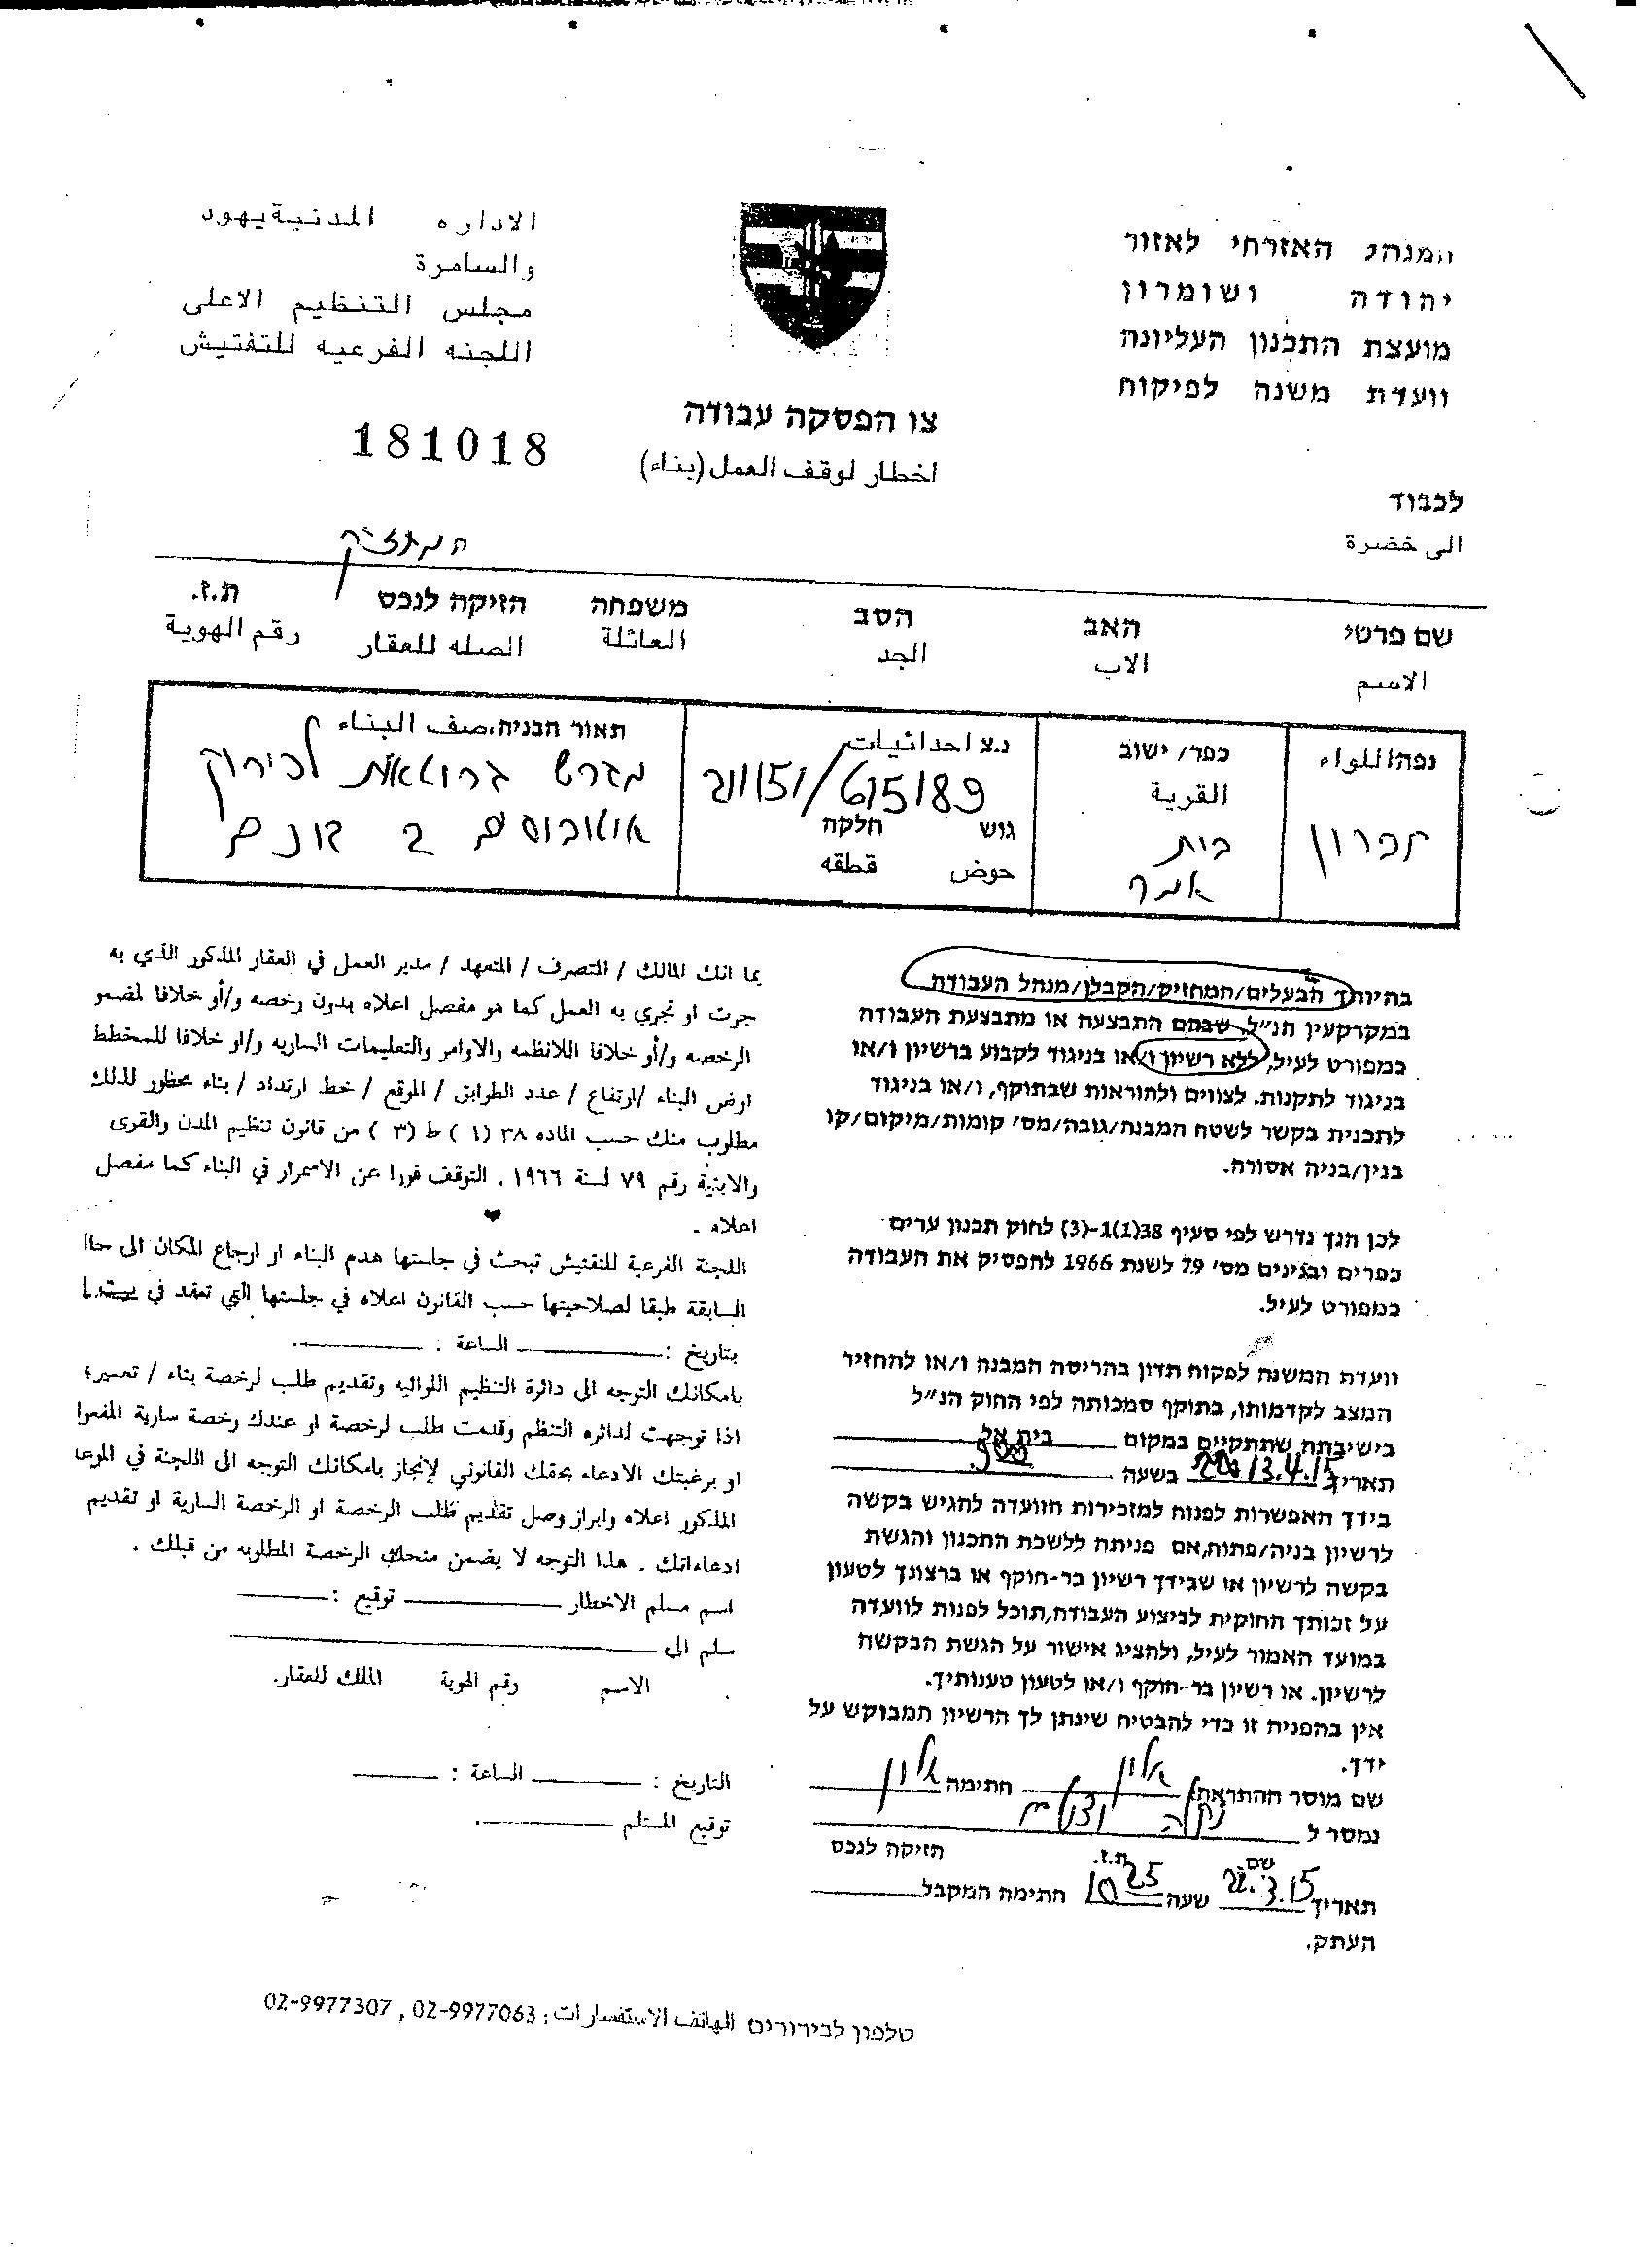 המנהל האזרחי לאזור
יהודה ושומרון
מועצת התכנון העליונה
וועדת משנה לפיקוח
الاداره المدنية يهود
والسامرة
مجلس التنظيم الاعلى
اللجنه الفرعيه للتفتيش
צו הפסקה עבודה
اخطار لوقف العمل (بناء)
181018
לכבוד
الى خضرة
המחזיק
שם פרטי האב הסב משפחה הזיקה לנכס ת.ז.
الاسم الاب الجد العائلة الصله للعقار رقم الهوية
נפה/اللواء
חברון
כפר/ ישוב
القرية
בית
אמר
נ.צ احداثيات
615189
גוש חלקה
حوض قطقه
תאור הבניה، صف البناء
מגרש גרוטאות לפירוק
אוטובוסים 2 דונם
בהיותך הבעלים/המחזיק/הקבלן/מנהל העבודה
במקרקעין הנ"ל, שבהם התבצעה או מתבצעת העבודה
כמפורט לעיל, ללא רשיון ו/או בניגוד לקבוע ברשיון ו/או
בניגוד לתקנות. לצווים ולהוראות שבתוקף, ו/או בניגוד
לתכנית בקשר לשטח המבנה/גובה/מס' קומות/מיקום/קו
בנין/בניה אסורה.
לכן הנך נדרש לפי סעיף 38(1)1-(3) לחוק תכנון ערים
כפרים ובנינים מס' 79 לשנת 1966 להפסיק את העבודה
כמפורט לעיל.
וועדת המשנה לפקוח תדון בהריסת המבנה ו/או להחזיר
המצב לקדמותו, בתוקף סמכותה לפי החוק הנ"ל
בישיבתה שתתקיים במקום בית אל
תאריך 13.4.15 בשעה 9:00
בידך האפשרות לפנות למזכירות הוועדה להגיש בקשה
לרשיון בניה/פתוח, אם פניתה ללשכת התכנון והגשת
בקשה לרשיון או שבידך רשיון בר-תוקף או ברצונך לטעון
על זכותך החוקית לביצוע העבודה, תוכל לפנות לוועדה
במועד האמור לעיל, ולהציג אישור על הגשת הבקשה
לרשיון. או רשיון בר-תוקף ו/או לטעון טענותיך.
אין בהפניה זו כדי להבטיח שינתן לך הרשיון המבוקש על
ידך.
שם מוסר ההתראה אלון חתימה אלון
נמסר ל
שם ת.ז. הזיקה לנכס
תאריך 22.3.15 שעה 10 25 חתימה המקבל
העתק.
بما انك المالك / المتصرف / المتعهد / مدير العمل في العقار المذكور الذي به
جرت او تجري به العمل كما هو مفصل اعلاه بدون رخصه و/أو خلافا لمضمو
الرخصه و/أو خلافا اللانظمه والاوامر والتعليمات الساريه و/او خلافا للمخطط
ارض البناء /ارتفاع / عدد الطوابق / الموقع / خط ارتداد / بناء محظور لذلك
مطلوب منك حسب الماده ٣٨ (١ ) ط (٣ ) من قانون تنظيم المدن والقرى
والابنية رقم ٧٩ لسنة ١٩٦٦ . التوقف فورا عن الاسمرار في البناء كما مفصل
اعلاه .
اللجنة الفرعية للتفتيش تبحث في جلستها هدم البناء او ارجاع المكان الى حاا
السابقة طبقا لصلاحيتها حسب القانون اعلاه في جلستها التي تعقد في بيت ا
بتاريخ : الساعة :
بامكانك التوجه الى دائرة التنظيم اللواليه وتقديم طلب لرخصة بناء / تعمير؛
اذا توجهت لدائره التنظم وقدمت طلب لرخصة او عندك رخصة سارية المفعوا
او برغبتك الادعاء بحقك القانوني لإنجاز بامكانك التوجه الى اللجنة في الموعا
المذكور اعلاه وابراز وصل تقديم طلب الرخصة او الرخصة السارية او تقديم
ادعاءاتك . هذا التوجه لا يضمن منحك الرخصة المطلوبه من قبلك .
اسم مسلم الاخطار توقيع :
سلم الى
الاسم رقم الهوية الملك للعقار.
التاريخ : الساعة :
توقيع المستلم
טלפון לבירורים الهاتف الاستفسارات: 02-9977063 , 02-9977307